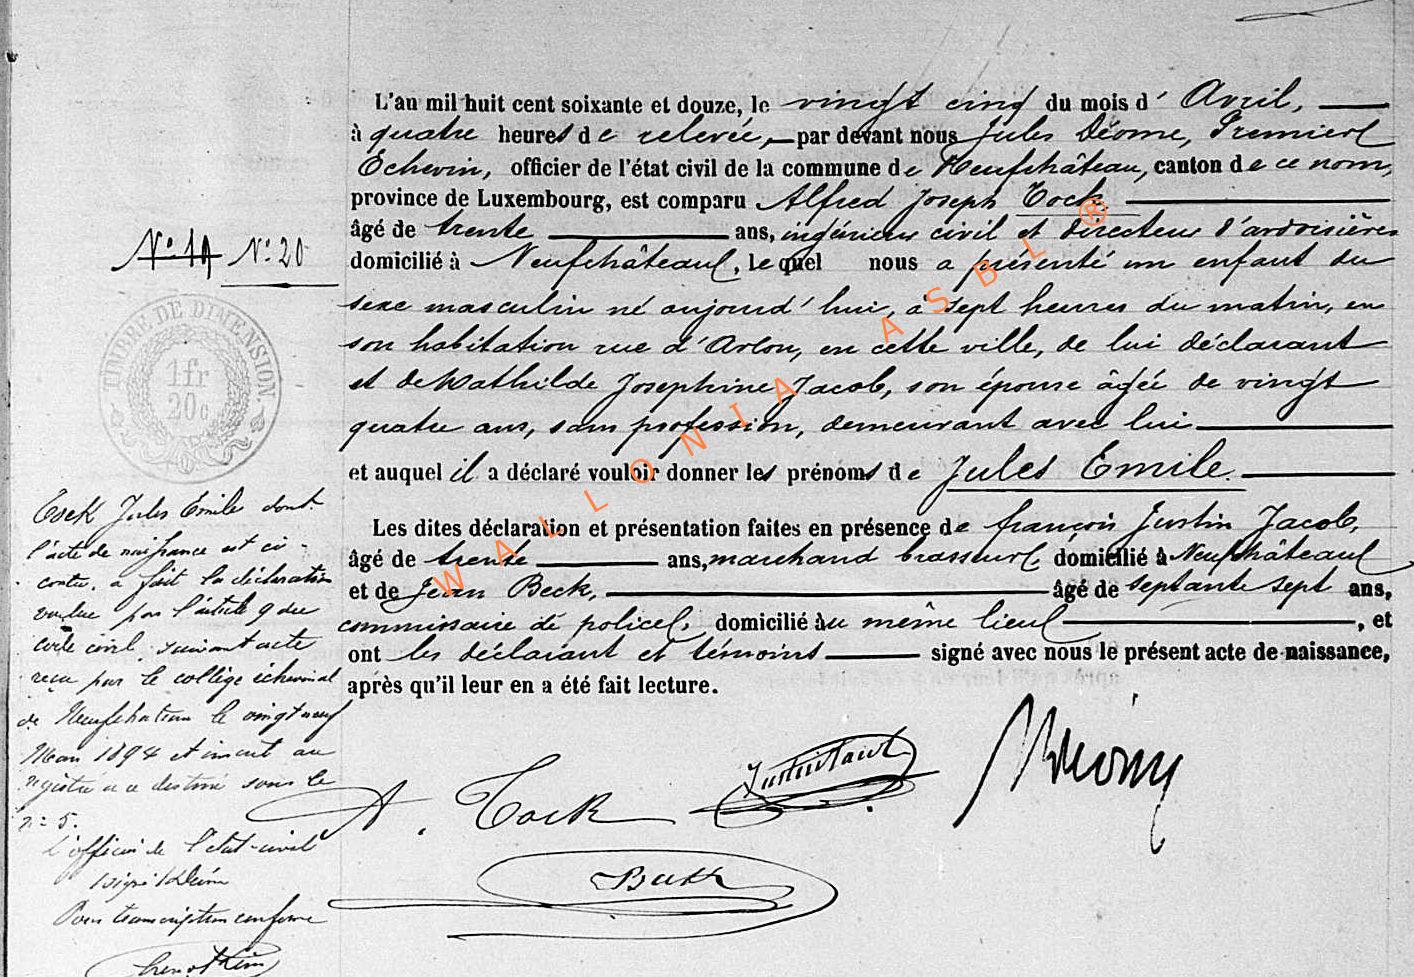 L'an mil huit cent soixante et douze, le vingt cinq du mois d' Avril,
à quatre heures de relevée, par devant nous Jules Déome, Premier
Échevin, officier de l'état civil de la commune de Neufchâteau, canton de ce nom,
province de Luxembourg, est comparu Alfred Joseph Tock
âgé de trente ans, ingénieur civil et directeur d'ardoisières
domicilié à Neufchâteau, lequel nous a présenté un enfant du
sexe masculin né aujourd'hui, à sept heures du matin, en
son habitation rue d'Arlon, en cette ville, de lui déclarant
et de Mathilde Josephine Jacob, son épouse âgée de vingt
quatre ans, sans profession, demeurant avec lui
et auquel il a déclaré vouloir donner les prénoms de Jules Emile.
Les dites déclaration et présentation faites en présence de françois Justin Jacob,
âgé de trente ans, marchand brasseur, domicilié à Neufchâteau
et de Jean Beck, âgé de septante sept ans,
commissaire de police, domicilié au même lieu, et
ont les déclarant et témoins signé avec nous le présent acte de naissance,
après qu'il leur en a été fait lecture.
N° 19 N° 20
TIMBRE DE DIMENSION
1fr
20c
Tock Jules Emile dont
l'acte de naissance est ci-
contre, a fait la déclaration
voulue par l'article 9 du
code civil, suivant acte
reçu par le collège échevinal
de Neufchateau le vingt neuf
Mai 1894 et inscrit au
registre à ce destiné sous le
n° 5.
L'officier de l'état-civil
signé
Pour transcription conforme
A. Tock
Beck
WALLONIA ASBL ®